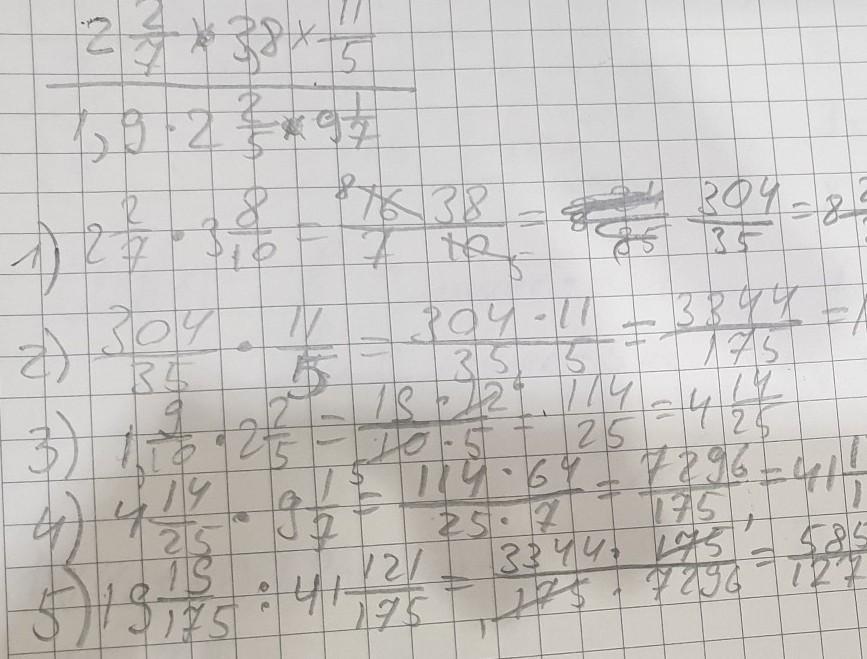 2 2/7 × 3,8 × 11/5
1,9 · 2 2/5 × 9 1/7
1) 2 2/7 · 3 8/10 = 16 38 / 7 10 = 304/35 = 8
2) 304/35 · 11/5 = 304 · 11 / 35 5 = 3344/175 =
3) 1 9/10 · 2 2/5 = 19 · 12 / 10 · 5 = 114/25 = 4 14/25
4) 4 14/25 · 9 1/7 = 114 · 64 / 25 · 7 = 7296/175 = 41
5) 19 19/175 : 41 121/175 = 3344 · 175 / 175 · 7296 =